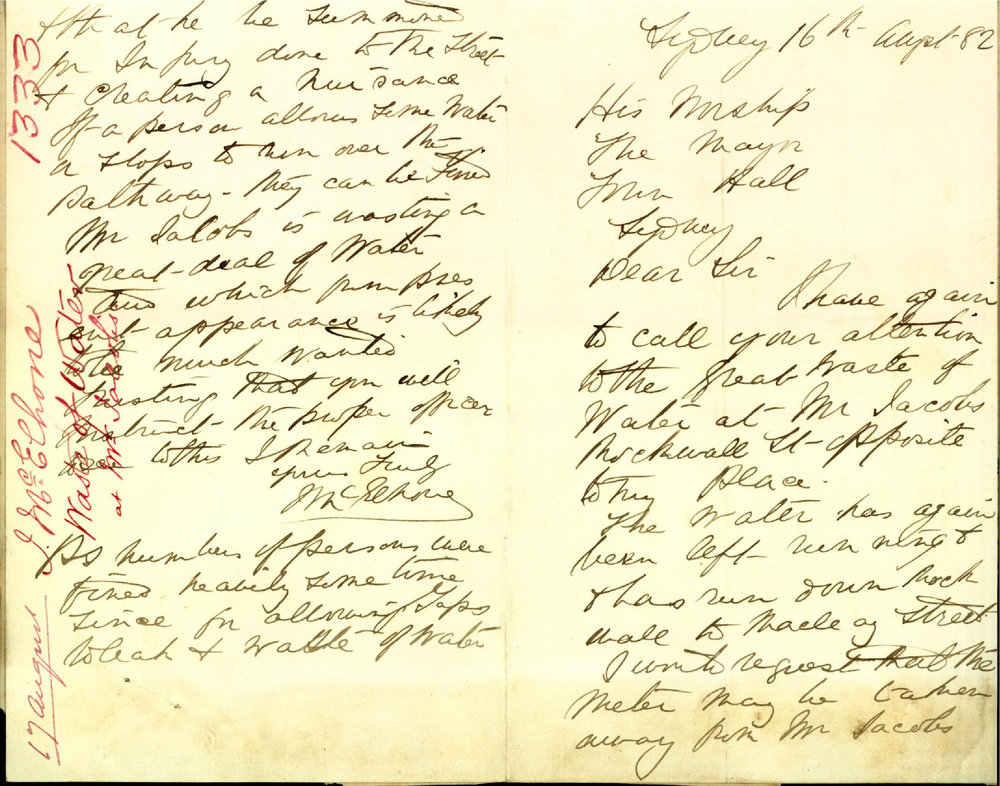 Sydney 16th Augst 82
His Worship
The Mayor
Town Hall
Sydney
Dear Sir
I have again
to call your attention
to the great waste of
Water at Mr Jacobs
Rockwall St opposite
to my Place.
The Water has again
been left running &
& has run down Rock
wall to Macleay Street
I wish to request that the
meter may be taken
away from Mr Jacobs
& that he be summoned
for Injury done to the Street
& creating a nuisance
If a person allows some Water
or slops to run over the
pathway - they can be fined
Mr Jacobs is wasting a
great deal of Water
which from pres
ent appearance is likely
to be much wanted
Trusting that you will
instruct the proper officer
to this I Remain
yours Truly
McElhone
PS numbers of persons were
fined heavily some time
since for allowing Taps
to leak & waste of Water
1333
J. McElhone
Waste of Water
at Mr Jacobs
17 August